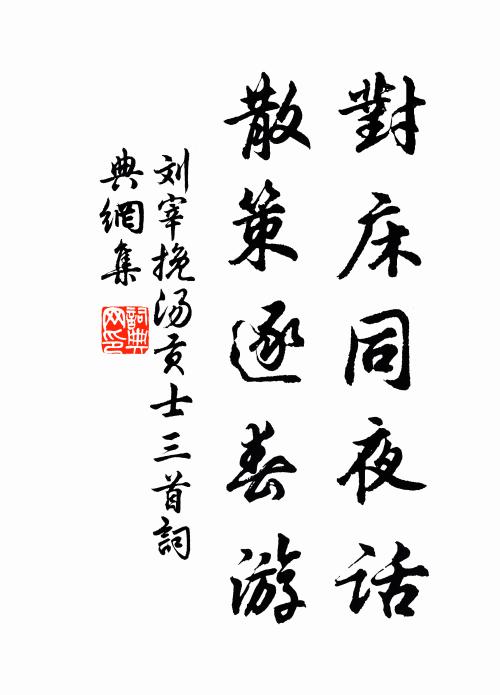 對床同夜话
散策逐春游
刘宰挽汤贡士三首詞
典網集
詞典网印